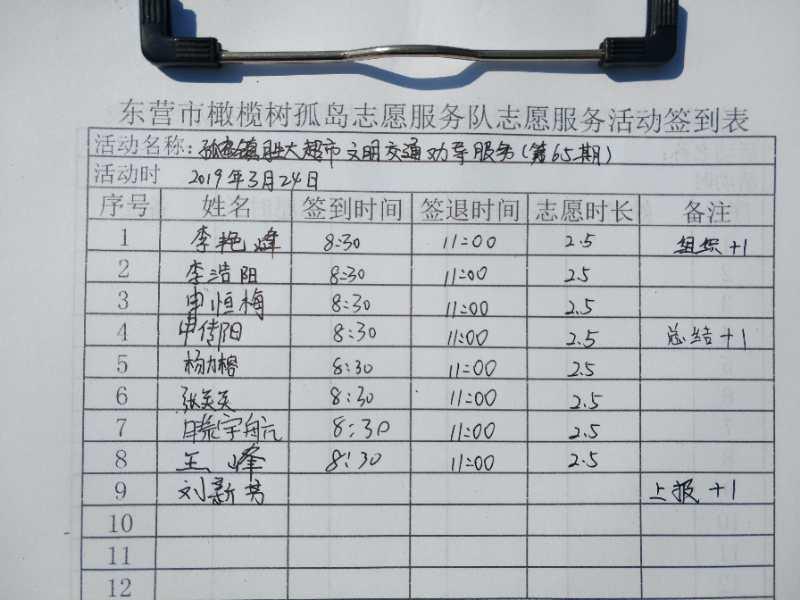 东营市橄榄树孤岛志愿服务队志愿服务活动签到表
活动名称：孤岛镇胜大超市文明交通劝导服务（第65期）
活动时 2019年3月24日
序号 姓名 签到时间 签退时间 志愿时长 备注
1 李艳峰 8:30 11:00 2.5 组织+1
2 李浩阳 8:30 11:00 2.5
3 申恒梅 8:30 11:00 2.5
4 申传阳 8:30 11:00 2.5 总结+1
5 杨力榕 8:30 11:00 2.5
6 张英英 8:30 11:00 2.5
7 宇航 8:30 11:00 2.5
8 王峰 8:30 11:00 2.5
9 刘新芳 上报+1
10
11
12